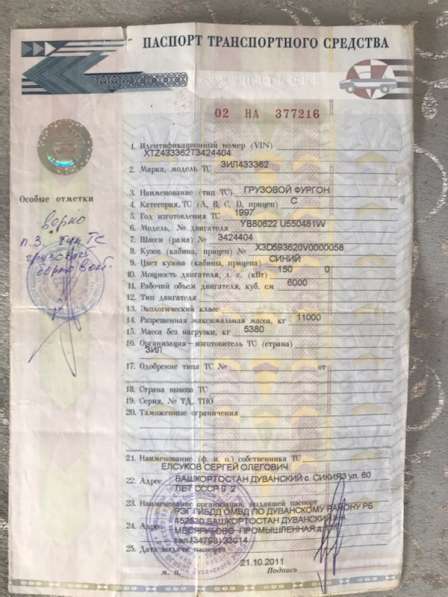 ПАСПОРТ ТРАНСПОРТНОГО СРЕДСТВА
02 НА 377216
1. Идентификационный номер (VIN)
XTZ433362T3424404
2. Марка, модель ТС ЗИЛ433362
3. Наименование (тип ТС) ГРУЗОВОЙ ФУРГОН
4. Категория ТС (A, B, C, D, прицеп) C
5. Год изготовления ТС 1997
6. Модель, № двигателя YB80622 U550481W
7. Шасси (рама) № 3424404
8. Кузов (кабина, прицеп) № X3D593620V0000058
9. Цвет кузова (кабины, прицепа) СИНИЙ
10. Мощность двигателя, л. с. (кВт) 150 0
11. Рабочий объем двигателя, куб. см 6000
12. Тип двигателя
13. Экологический класс
14. Разрешенная максимальная масса, кг 11000
15. Масса без нагрузки, кг 5380
16. Организация - изготовитель ТС (страна)
ЗИЛ
17. Одобрение типа ТС № от
18. Страна вывоза ТС
19. Серия, № ТД, ТПО
20. Таможенные ограничения
21. Наименование (ф. и. о.) собственника ТС
ЕЛСУКОВ СЕРГЕЙ ОЛЕГОВИЧ
22. Адрес БАШКОРТОСТАН ДУВАНСКИЙ с. СИКИЯЗ ул. 60
ЛЕТ СССР 9 2
23. Наименование организации, выдавшей паспорт
РЭГ ГИБДД ОМВД ПО ДУВАНСКОМУ РАЙОНУ РБ
24. Адрес 452530 БАШКОРТОСТАН ДУВАНСКИЙ
МЕСЯГУТОВО ПРОМЫШЛЕННАЯ
тел (34798) 33014
25. Дата выдачи паспорта
21.10.2011
М. П. Подпись
Особые отметки
верно
п. 3. тип ТС
грузовой
борт